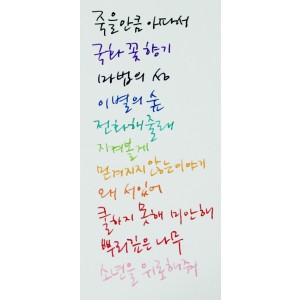 죽을만큼 아파서
국화꽃향기
마법의 성
이별의 숲
전화해줄래
지켜볼게
믿겨지지 않는이야기
왜 서있어
쿨하지 못해 미안해
뿌리깊은 나무
소년을 위로해줘